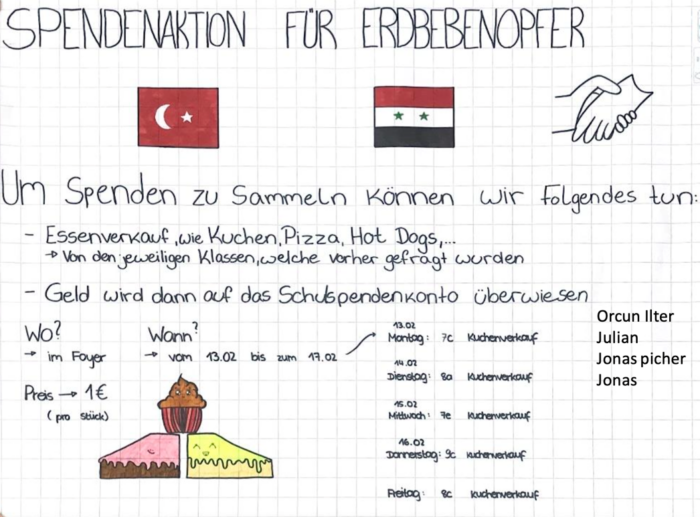 SPENDENAKTION FÜR ERDBEBENOPFER
Um Spenden zu Sammeln können wir folgendes tun:
- Essenverkauf, wie Kuchen, Pizza, Hot Dogs,...
→ Von den jeweiligen Klassen, welche vorher gefragt wurden
- Geld wird dann auf das Schulspendenkonto überwiesen
Wo?
→ im Foyer
Preis → 1€
(pro Stück)
Wann?
→ vom 13.02 bis zum 17.02
13.02
Montag: 7c Kuchenverkauf
14.02
Dienstag: 8a Kuchenverkauf
15.02
Mittwoch: 7e Kuchenverkauf
16.02
Donnerstag: 9c Kuchenverkauf
Freitag: 8c Kuchenverkauf
Orcun Ilter
Julian
Jonas picher
Jonas